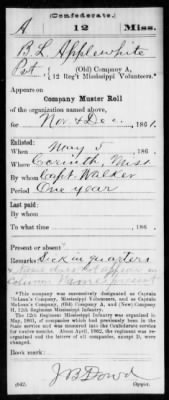 (Confederate.)
A 12 Miss.
B. L. Applewhite
Pvt, (Old) Company A,
12 Reg't Mississippi Volunteers.*
Appears on
Company Muster Roll
of the organization named above,
for Nov & Dec, 1861.
Enlisted:
When May 5, 186
Where Corinth, Miss
By whom Capt. Walker
Period One year
Last paid:
By whom
To what time , 186 .
Present or absent*
Remarks: Sick in quarters
* Name does not appear in
column Names present
*This company was successively designated as Captain
McLean's Company, Mississippi Volunteers, and as Captain
McLean's Company, (Old) Company A, and (New) Company
H, 12th Regiment Mississippi Infantry.
The 12th Regiment Mississippi Infantry was organized in
May, 1861, of companies which had previously been in the
State service and was mustered into the Confederate service
for twelve months. About April, 1862, the regiment was re-
organized and the letters of all companies, except D, were
changed.
Book mark:
J B Dowd
(642) Copyist.